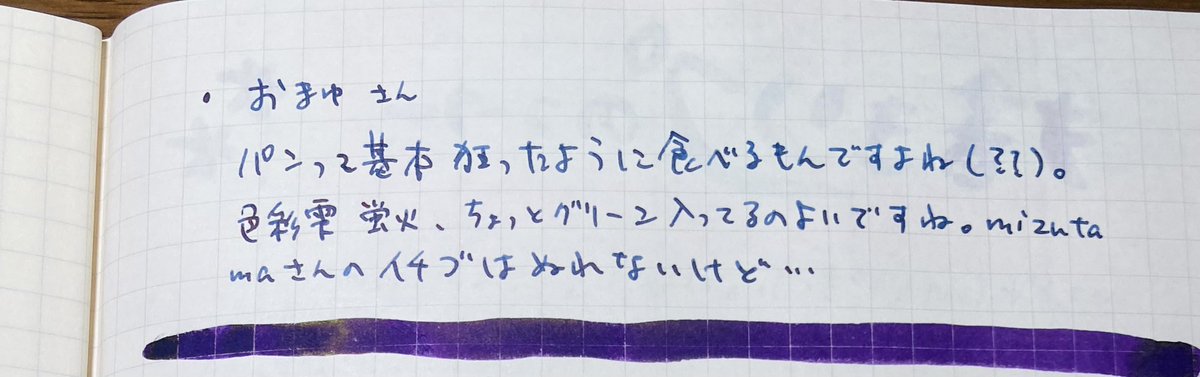 ・おまゆさん
パンって基本狂ったように食べるもんですよね(ミミ)。
色彩雫 蛍火、ちょっとグリーン入ってるのよいですね。mizuta
maさんのイチゴはぬれないけど…